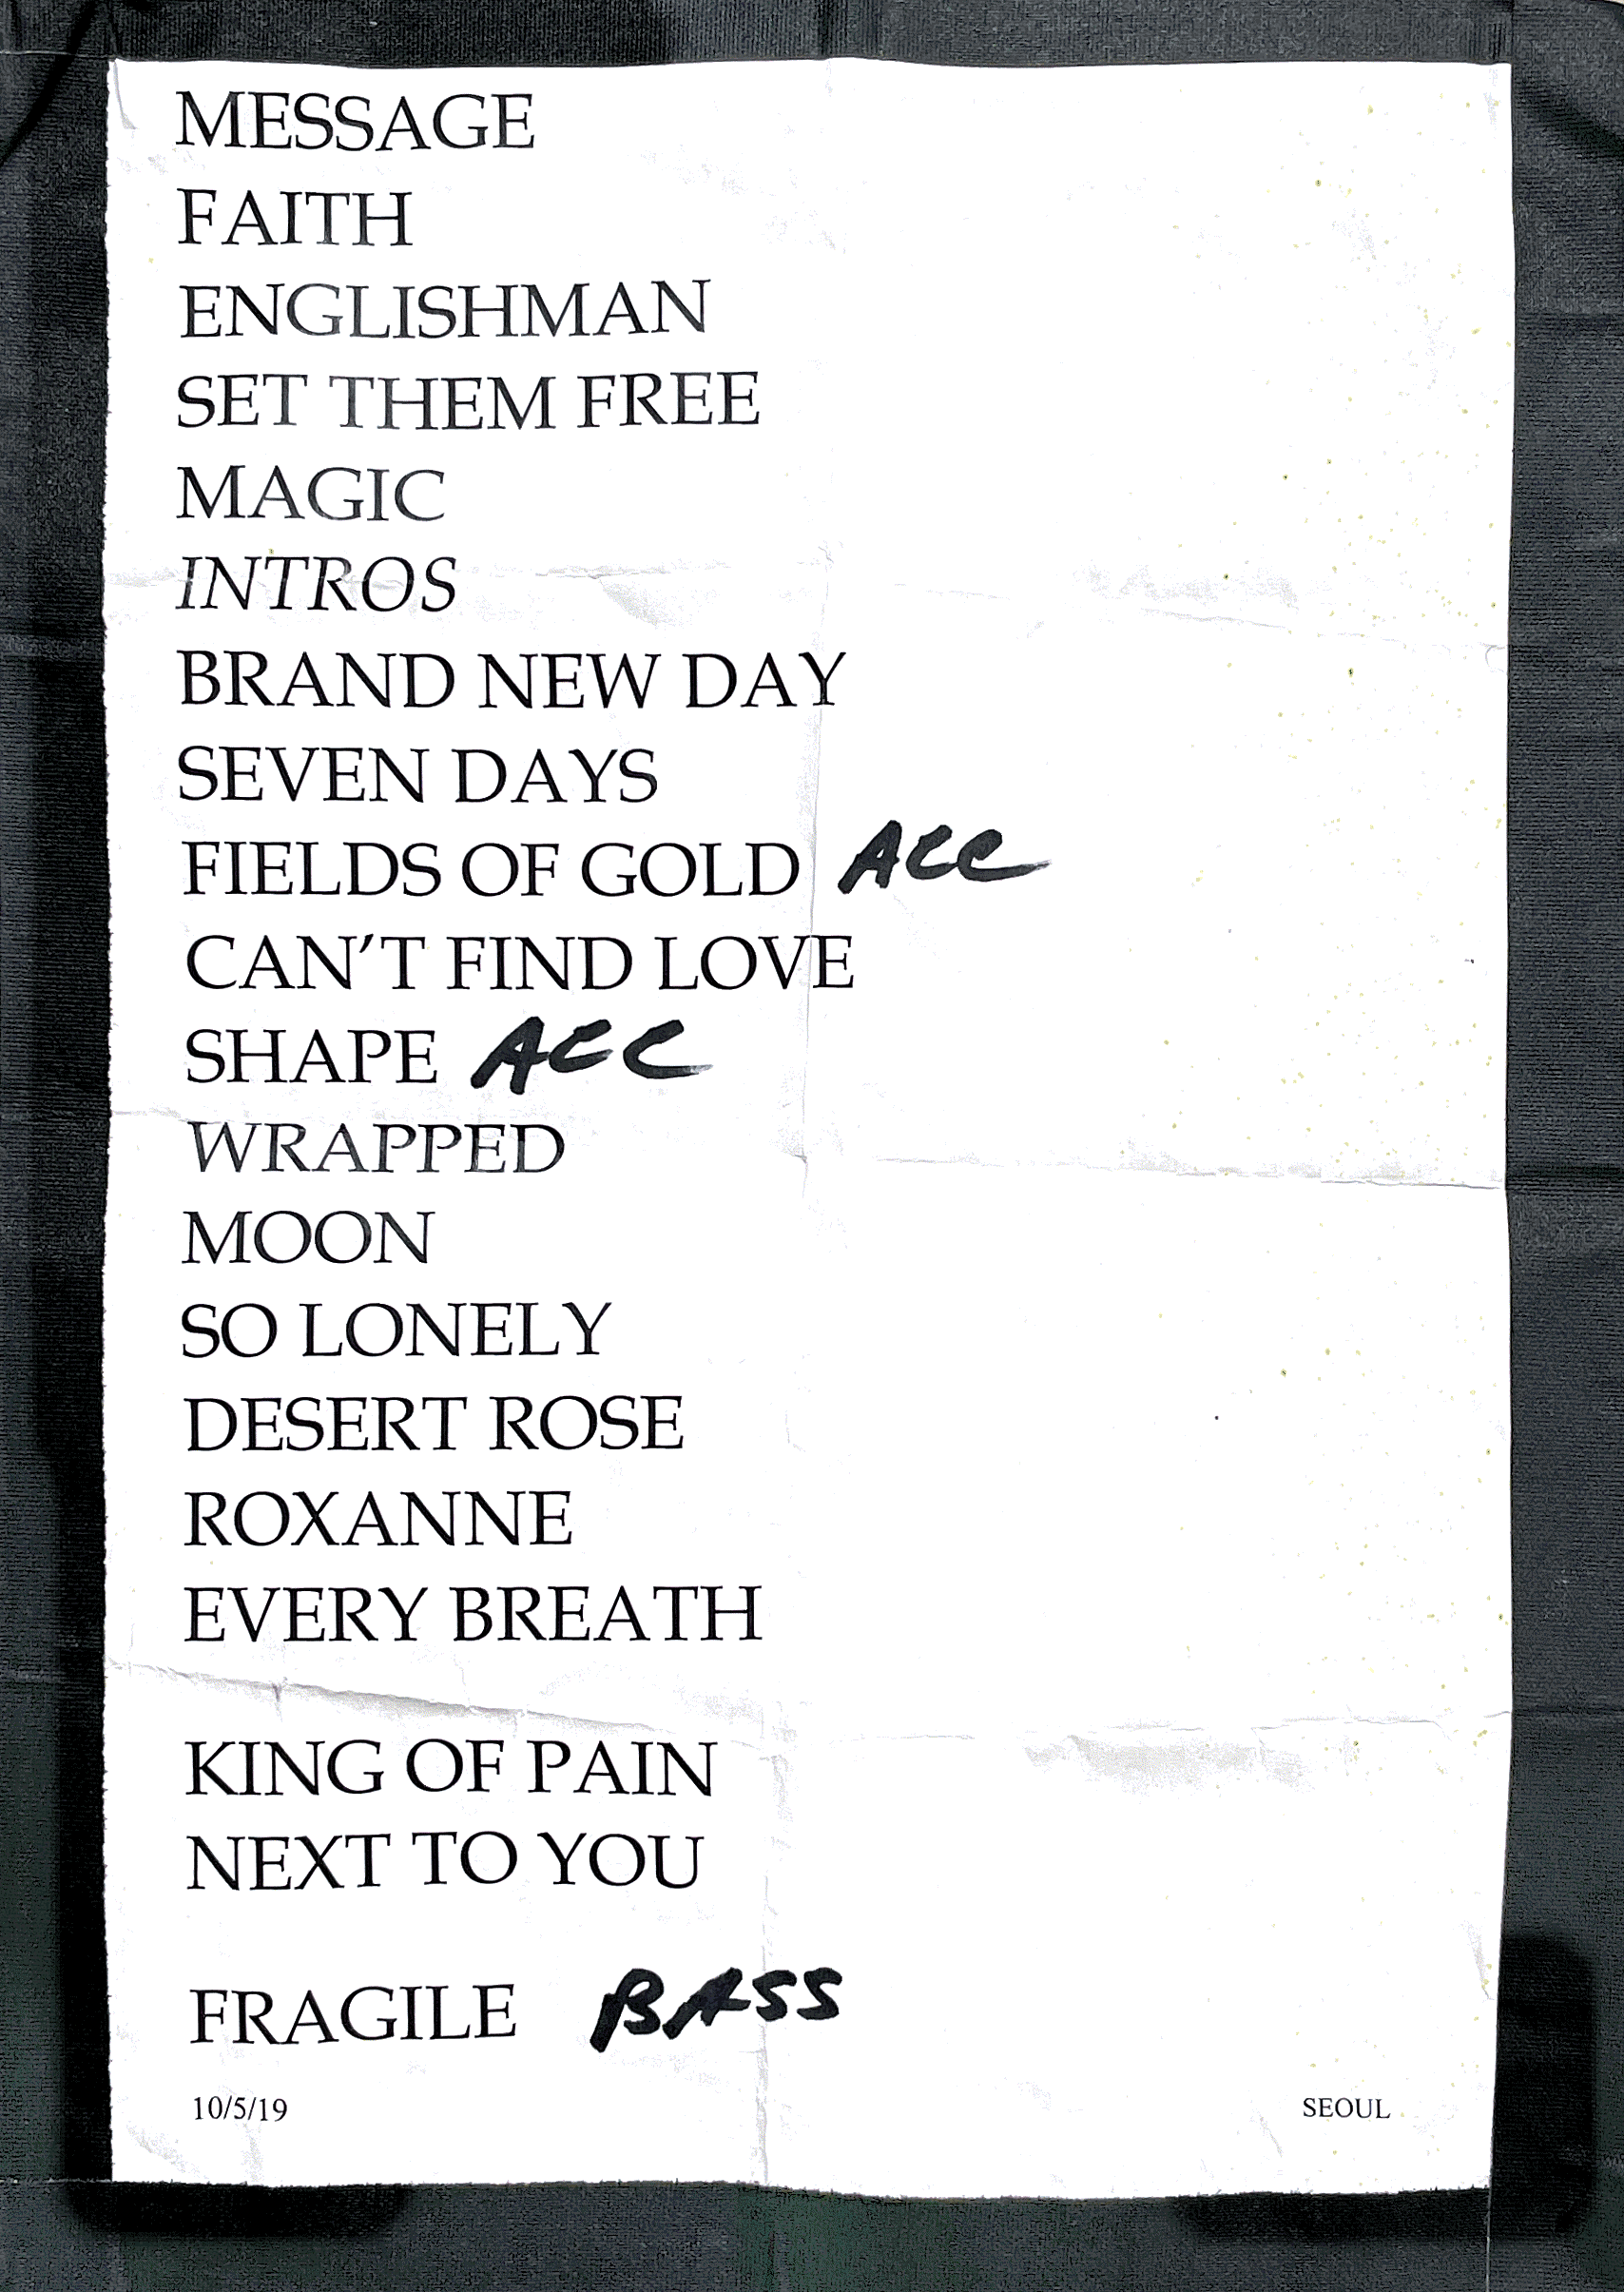 MESSAGE
FAITH
ENGLISHMAN
SET THEM FREE
MAGIC
INTROS
BRAND NEW DAY
SEVEN DAYS
FIELDS OF GOLD ACC
CAN'T FIND LOVE
SHAPE ACC
WRAPPED
MOON
SO LONELY
DESERT ROSE
ROXANNE
EVERY BREATH
KING OF PAIN
NEXT TO YOU
FRAGILE BASS
10/5/19 SEOUL